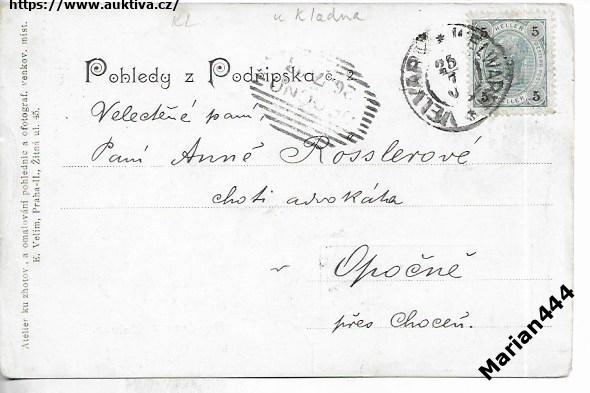 https://www.auktiva.cz/
KL u Kladna
Pohledy z Podřipska č. 2
5 HELLER 5
5 5
VELVARY
Velectěné paní,
Paní Anně Rosslerové
choti advokáta
v Opočně
přes Choceň.
Atelier ku zhotov. a omalování pohlednic a ofotograf. venkov. míst.
E. Velim, Praha-II., Žitná ul. 45.
Marian444